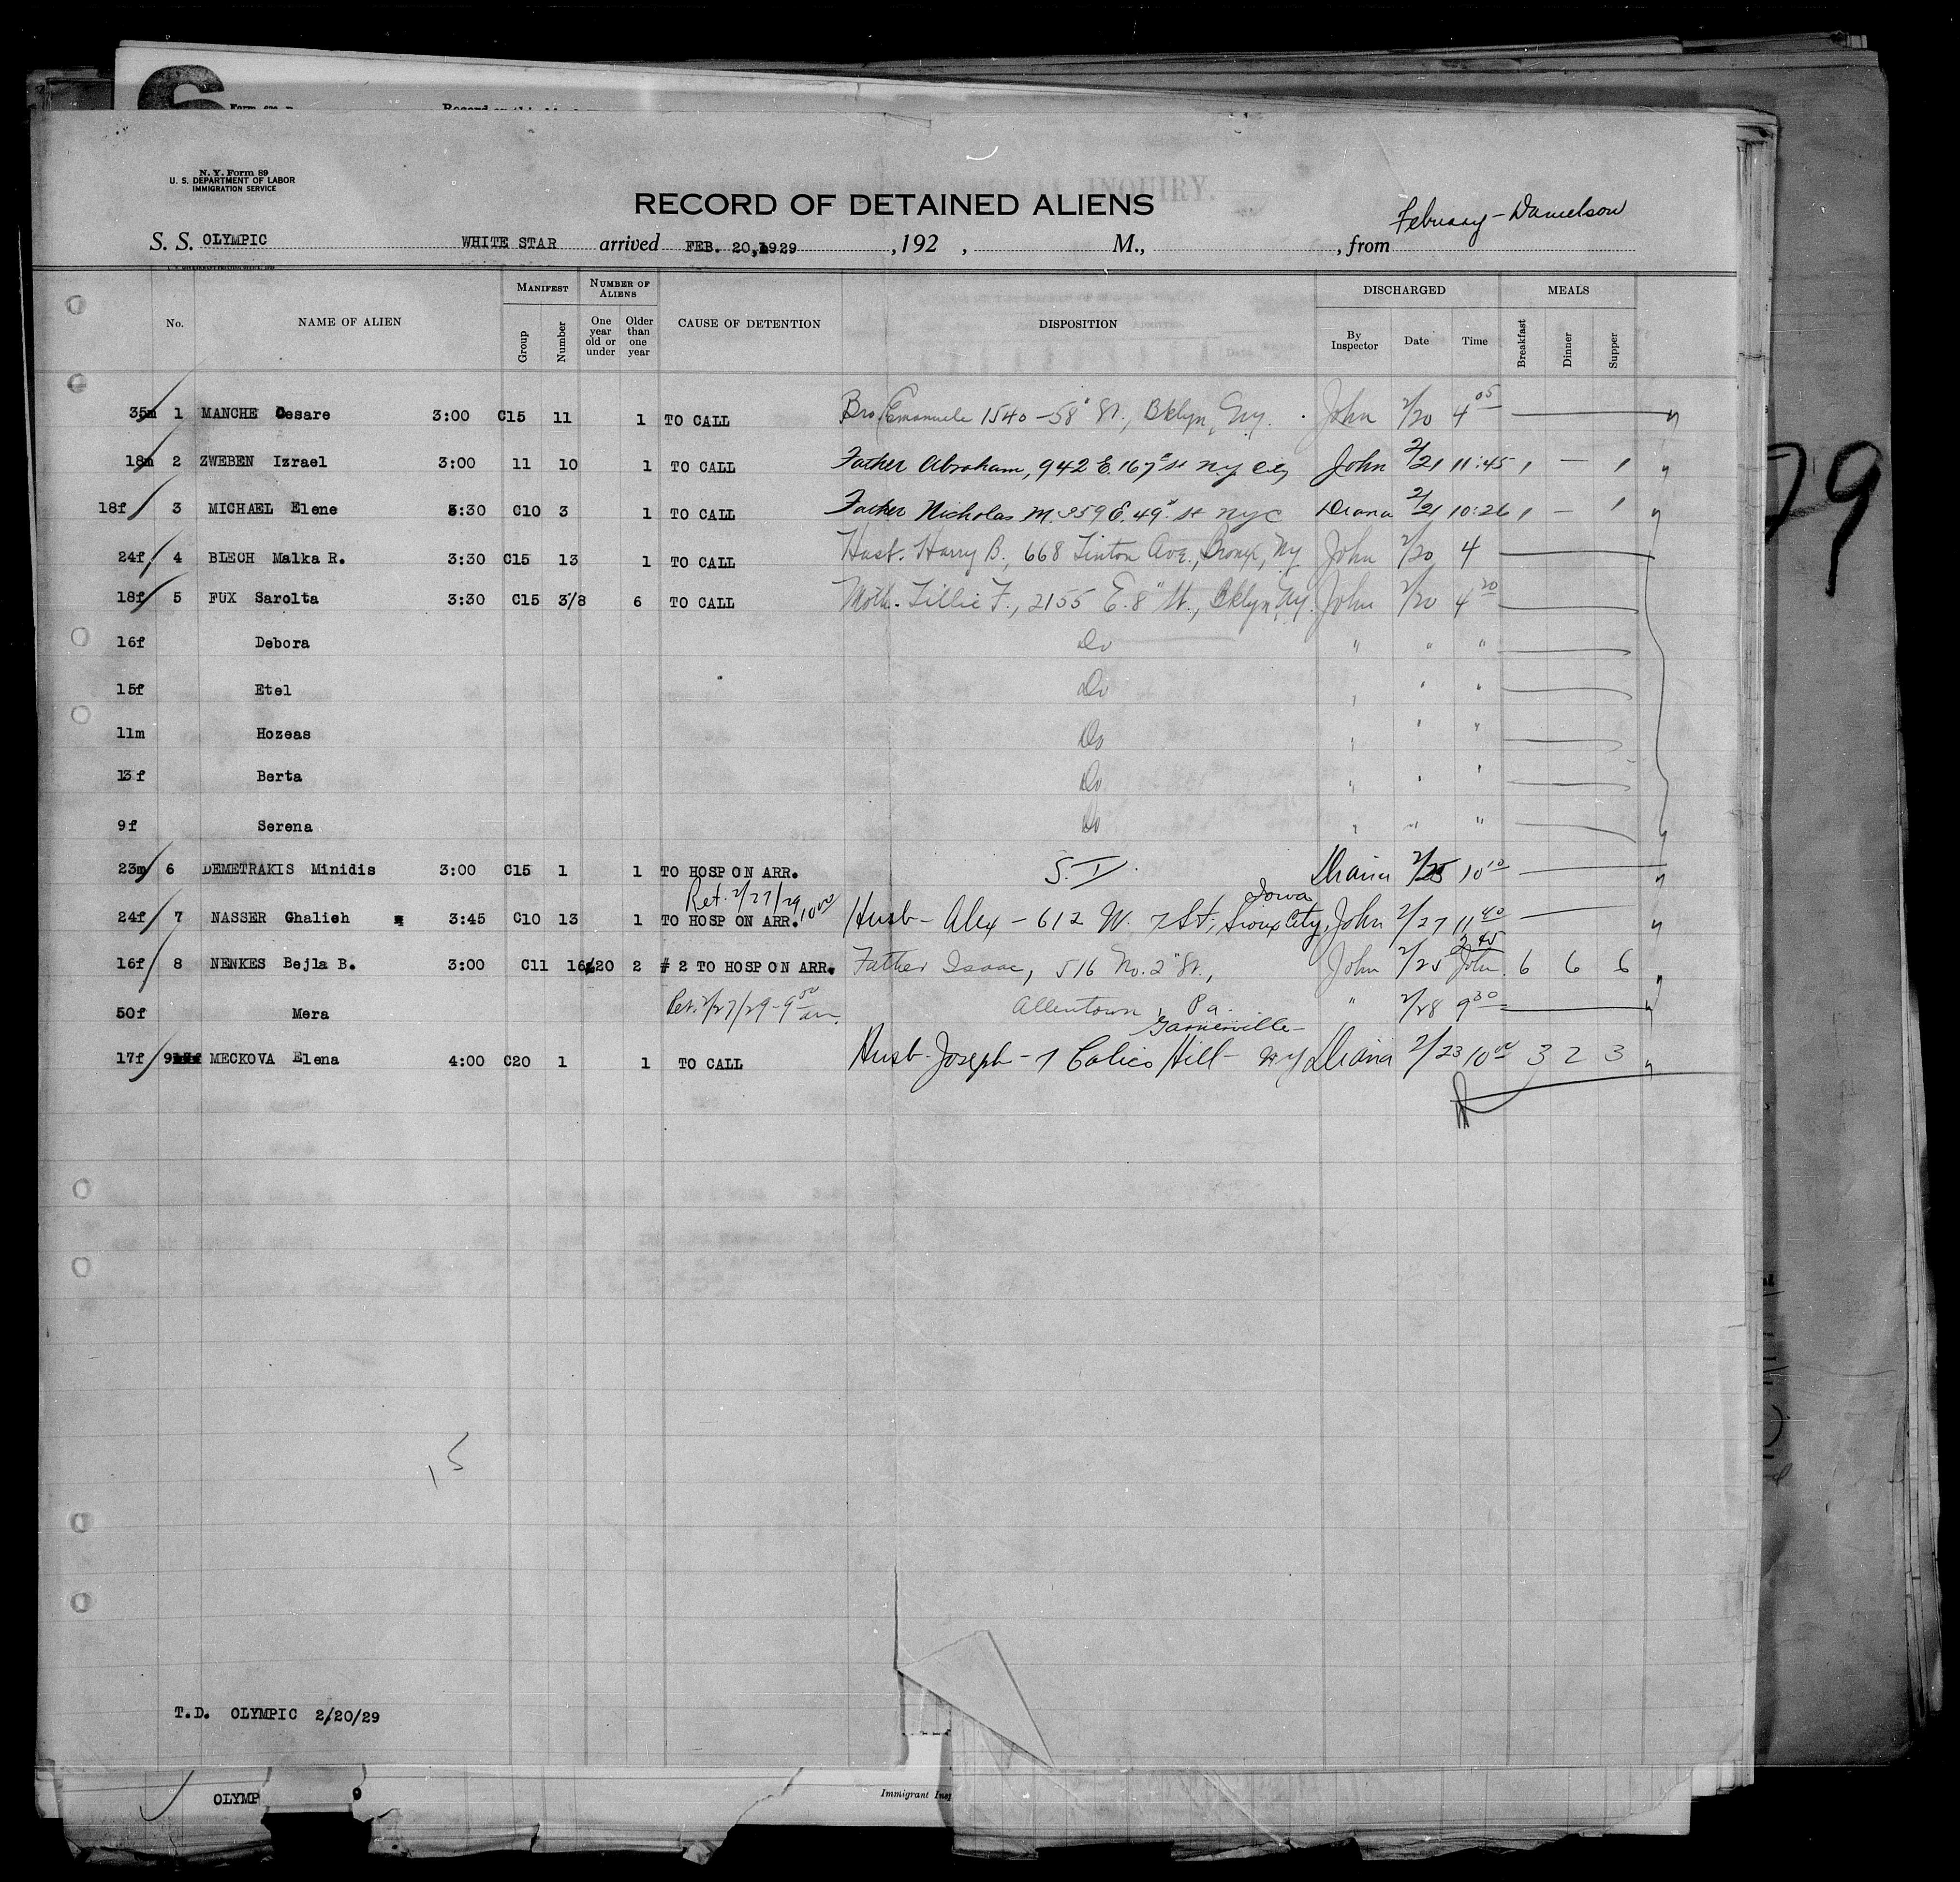 Form
Record
N. Y. Form 89
U. S. DEPARTMENT OF LABOR
IMMIGRATION SERVICE
INQUIRY.
RECORD OF DETAINED ALIENS
February - Danielson
S. S. OLYMPIC WHITE STAR arrived FEB. 20,1929 ,192 , M., , from
No. NAME OF ALIEN MANIFEST Group Number NUMBER OF ALIENS One year old or under Older than one year CAUSE OF DETENTION DISPOSITION DISCHARGED By Inspector Date Time MEALS Breakfast Dinner Supper
35m 1 MANCHE Cesare 3:00 C15 11 1 TO CALL Bro Emanuele 1540 - 58" St., Bklyn, Ny. John 2/20 4 05
18m 2 ZWEBEN Izrael 3:00 11 10 1 TO CALL Father Abraham, 942 E. 167" St NY City John 2/21 11:45 1 — 1 "
18f 3 MICHAEL Elene 5:30 C10 3 1 TO CALL Father Nicholas M. 359 E. 49" St NYC Diana 2/21 10:26 1 — 1 "
24f 4 BLECH Malka R. 3:30 C15 13 1 TO CALL Husb. Harry B., 668 Tinton Ave., Bronx, Ny. John 2/20 4
18f 5 FUX Sarolta 3:30 C15 3/8 6 TO CALL Moth. Tillie F., 2155 E. 8" St., Bklyn, Ny. John 2/20 4 20
16f Debora Do " " "
15f Etel Do " " "
11m Hozeas Do " " "
13f Berta Do " " "
9f Serena Do " " "
23m 6 DEMETRAKIS Minidis 3:00 C15 1 1 TO HOSP ON ARR. S.I. Diana 2/25 10 10
Ret. 2/27/29 10 00 Iowa
24f 7 NASSER Ghalieh 3:45 C10 13 1 TO HOSP ON ARR. Husb - Alex - 612 W. 7 St; Sioux City, John 2/27 11 40
2 45
16f 8 NENKES Bejla B. 3:00 C11 16&20 2 # 2 TO HOSP ON ARR. Father Isaac, 516 No. 2" St., John 2/25 John 6 6 6 "
50f Mera Ret. 2/27/29 - 9 50 am. Allentown, Pa. " 2/28 9 30
Garnerville
17f 9 MECKOVA Elena 4:00 C20 1 1 TO CALL Husb. Joseph - 7 Calico Hill - NY Diana 2/23 10 00 3 2 3 "
15
T.D. OLYMPIC 2/20/29
OLYMP 9
Immigrant Insp
29